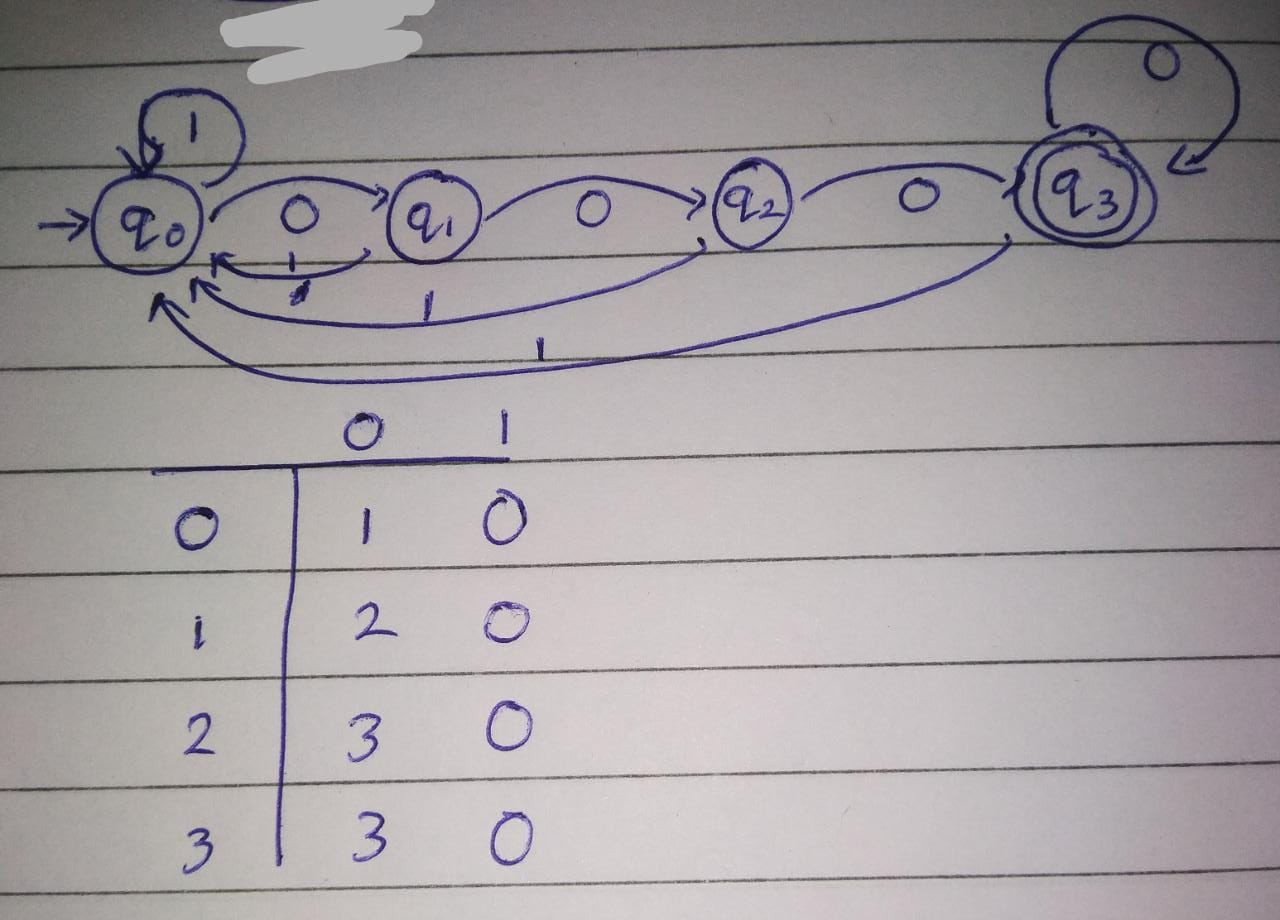 0
1
q0 0 q1 0 q2 0 q3
1
1
1
0 1
0 1 0
1 2 0
2 3 0
3 3 0